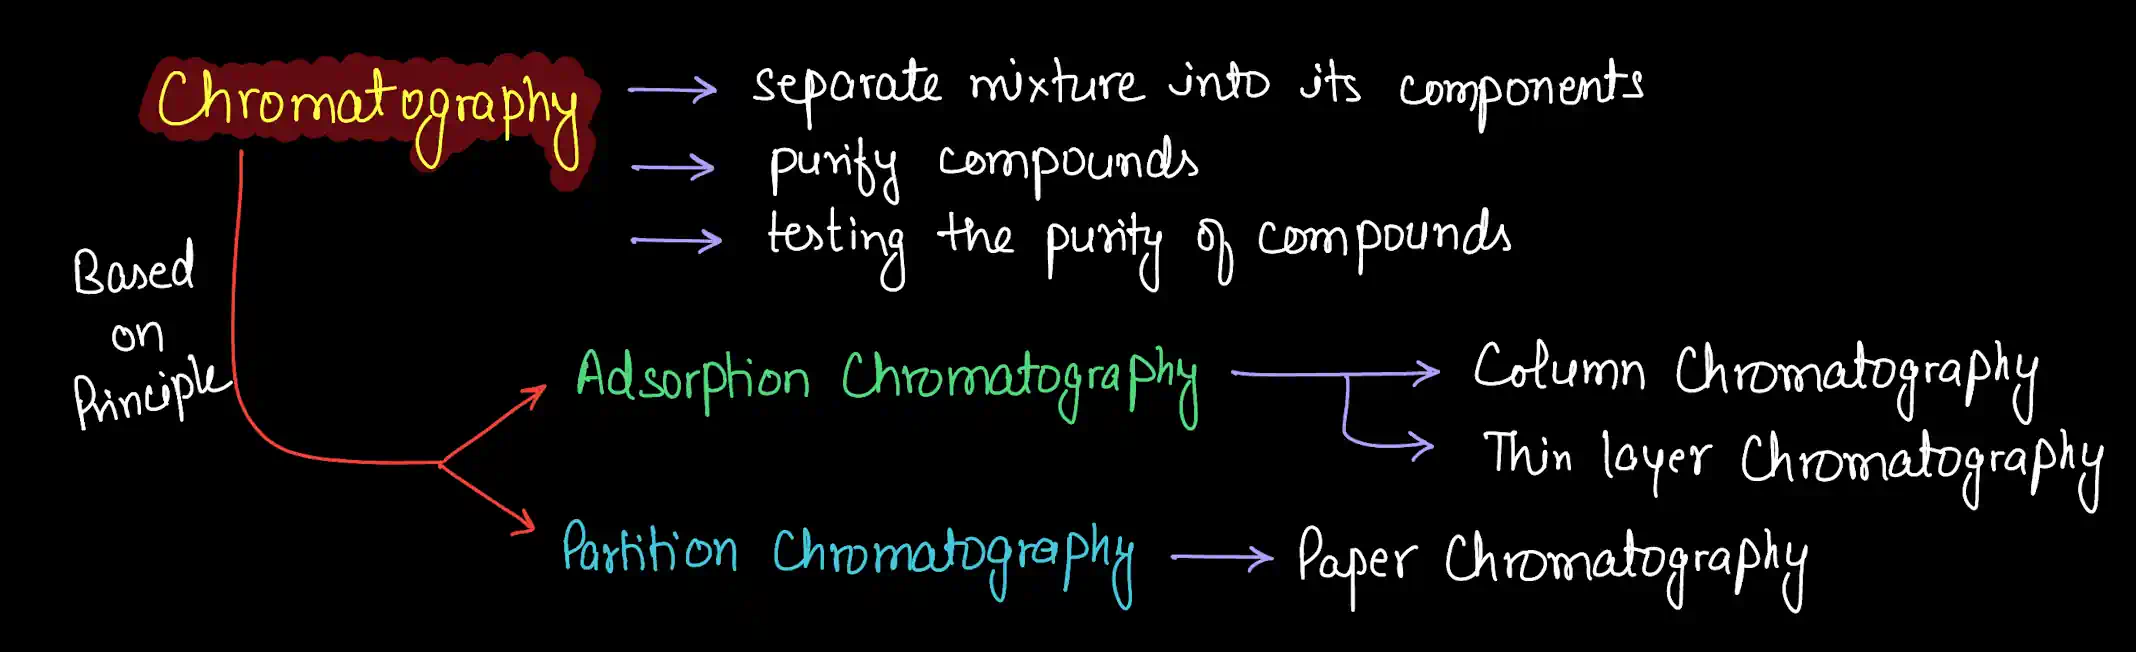 Chromatography → separate mixture into its components
→ purify compounds
→ testing the purity of compounds
Based
on
Principle
Adsorption Chromatography → Column Chromatography
→ Thin layer Chromatography
Partition Chromatography → Paper Chromatography